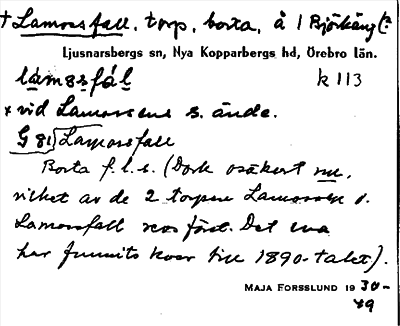 † Lamossfall, torp, borta, å 1 Björkäng (?
Ljusnarsbergs sn, Nya Kopparbergs hd, Örebro län.
lámɜsfál k 113
x vid Lamossens s. ände.
G 81) Lamossfall
Borta f.l.s. (Dock osäkert nu,
vilket av de 2 torpen Lamossen o.
Lamossfall revs först. Det ena
har funnits kvar till 1890-talet).
MAJA FORSSLUND 1930-
49